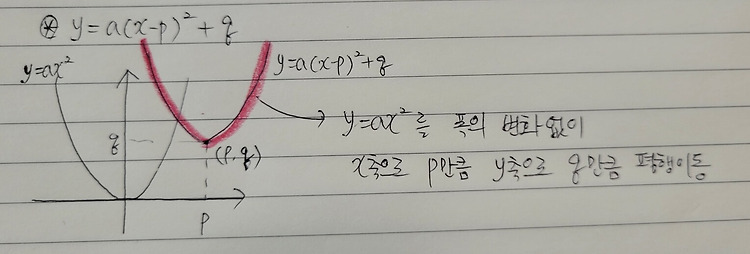 ⊛ y=a(x-p)²+q
y=ax²
y=a(x-p)²+q
q
(p, q)
p
→ y=ax²를 폭의 변화없이
x축으로 p만큼 y축으로 q만큼 평행이동